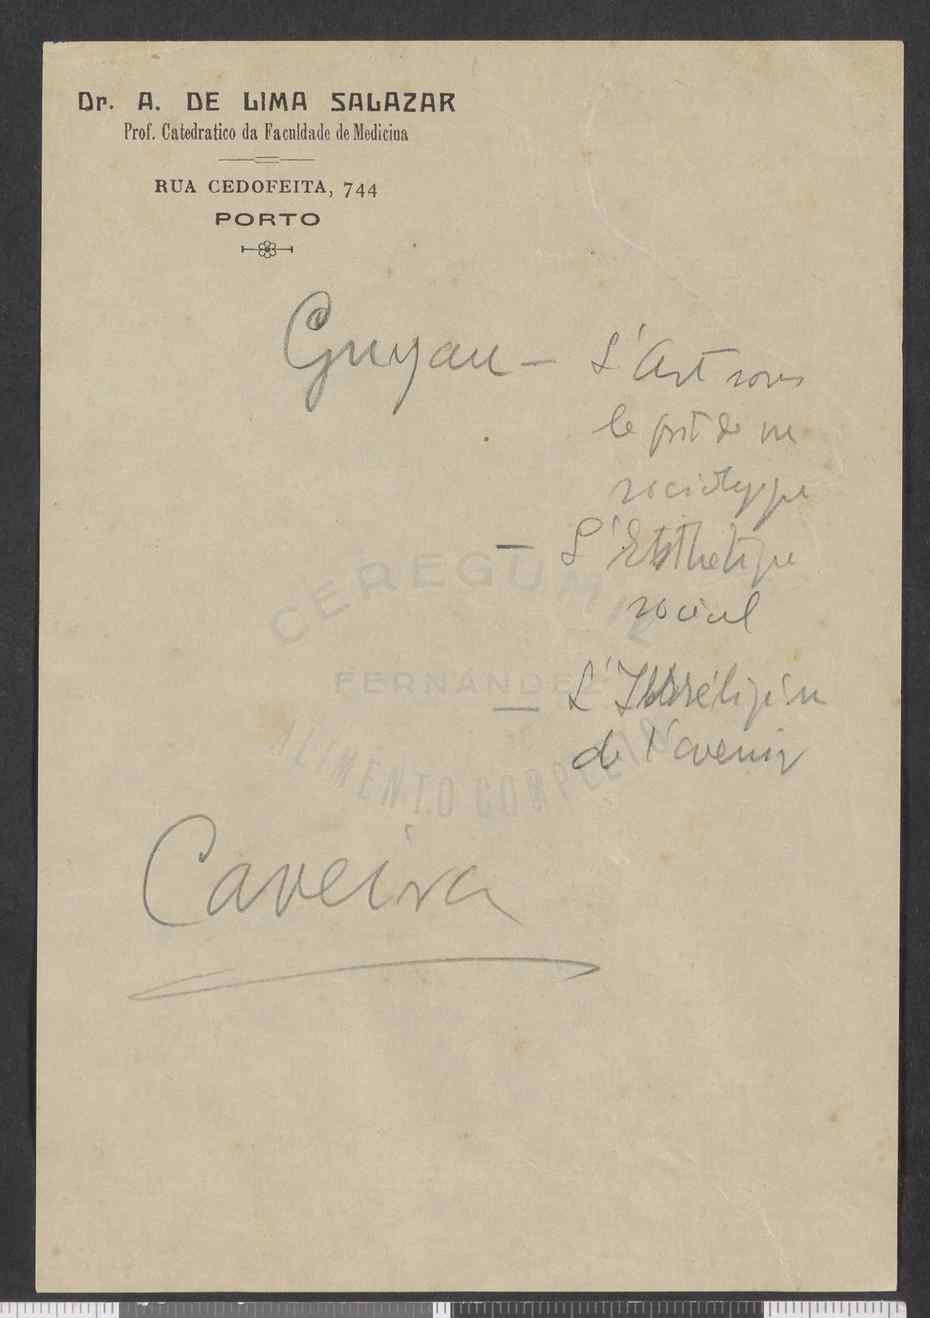 Dr. A. DE LIMA SALAZAR
Prof. Catedratico da Faculdade de Medicina
RUA CEDOFEITA, 744
PORTO
Guyau - L'Art sous
le de vue
sociologique
- L'Esthétique
social
- L'Irréligion
de l'avenir
CEREGUMIL
FERNÁNDEZ
ALIMENTO COMPLETO
Caveira